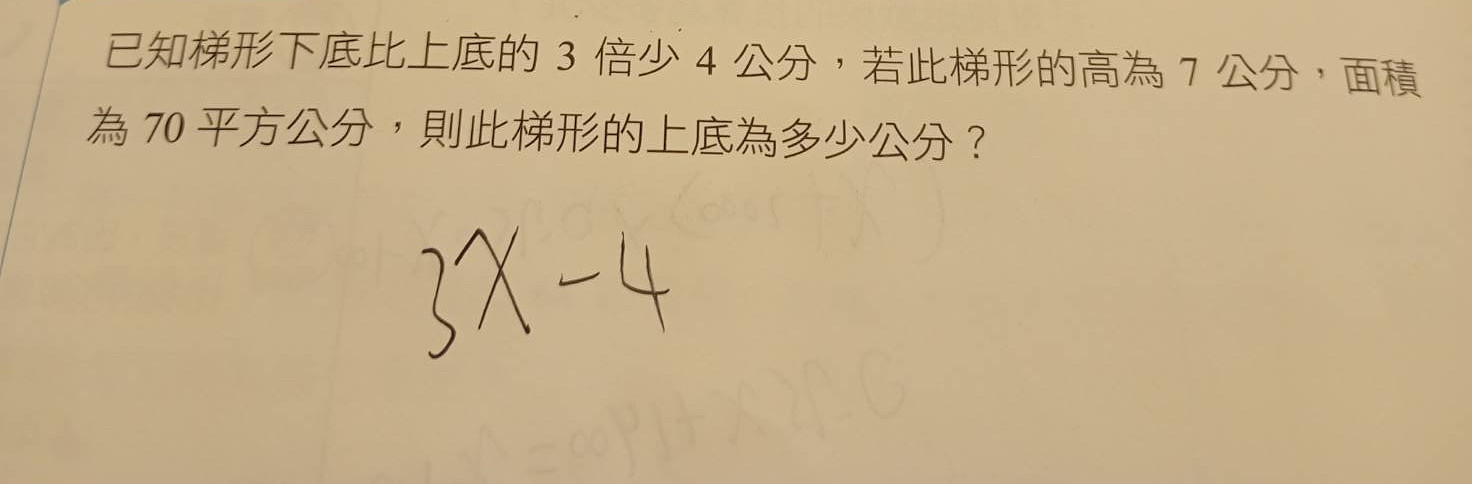 已知梯形下底比上底的 3 倍少 4 公分，若此梯形的高為 7 公分，面積
為 70 平方公分，則此梯形的上底為多少公分？
3x-4